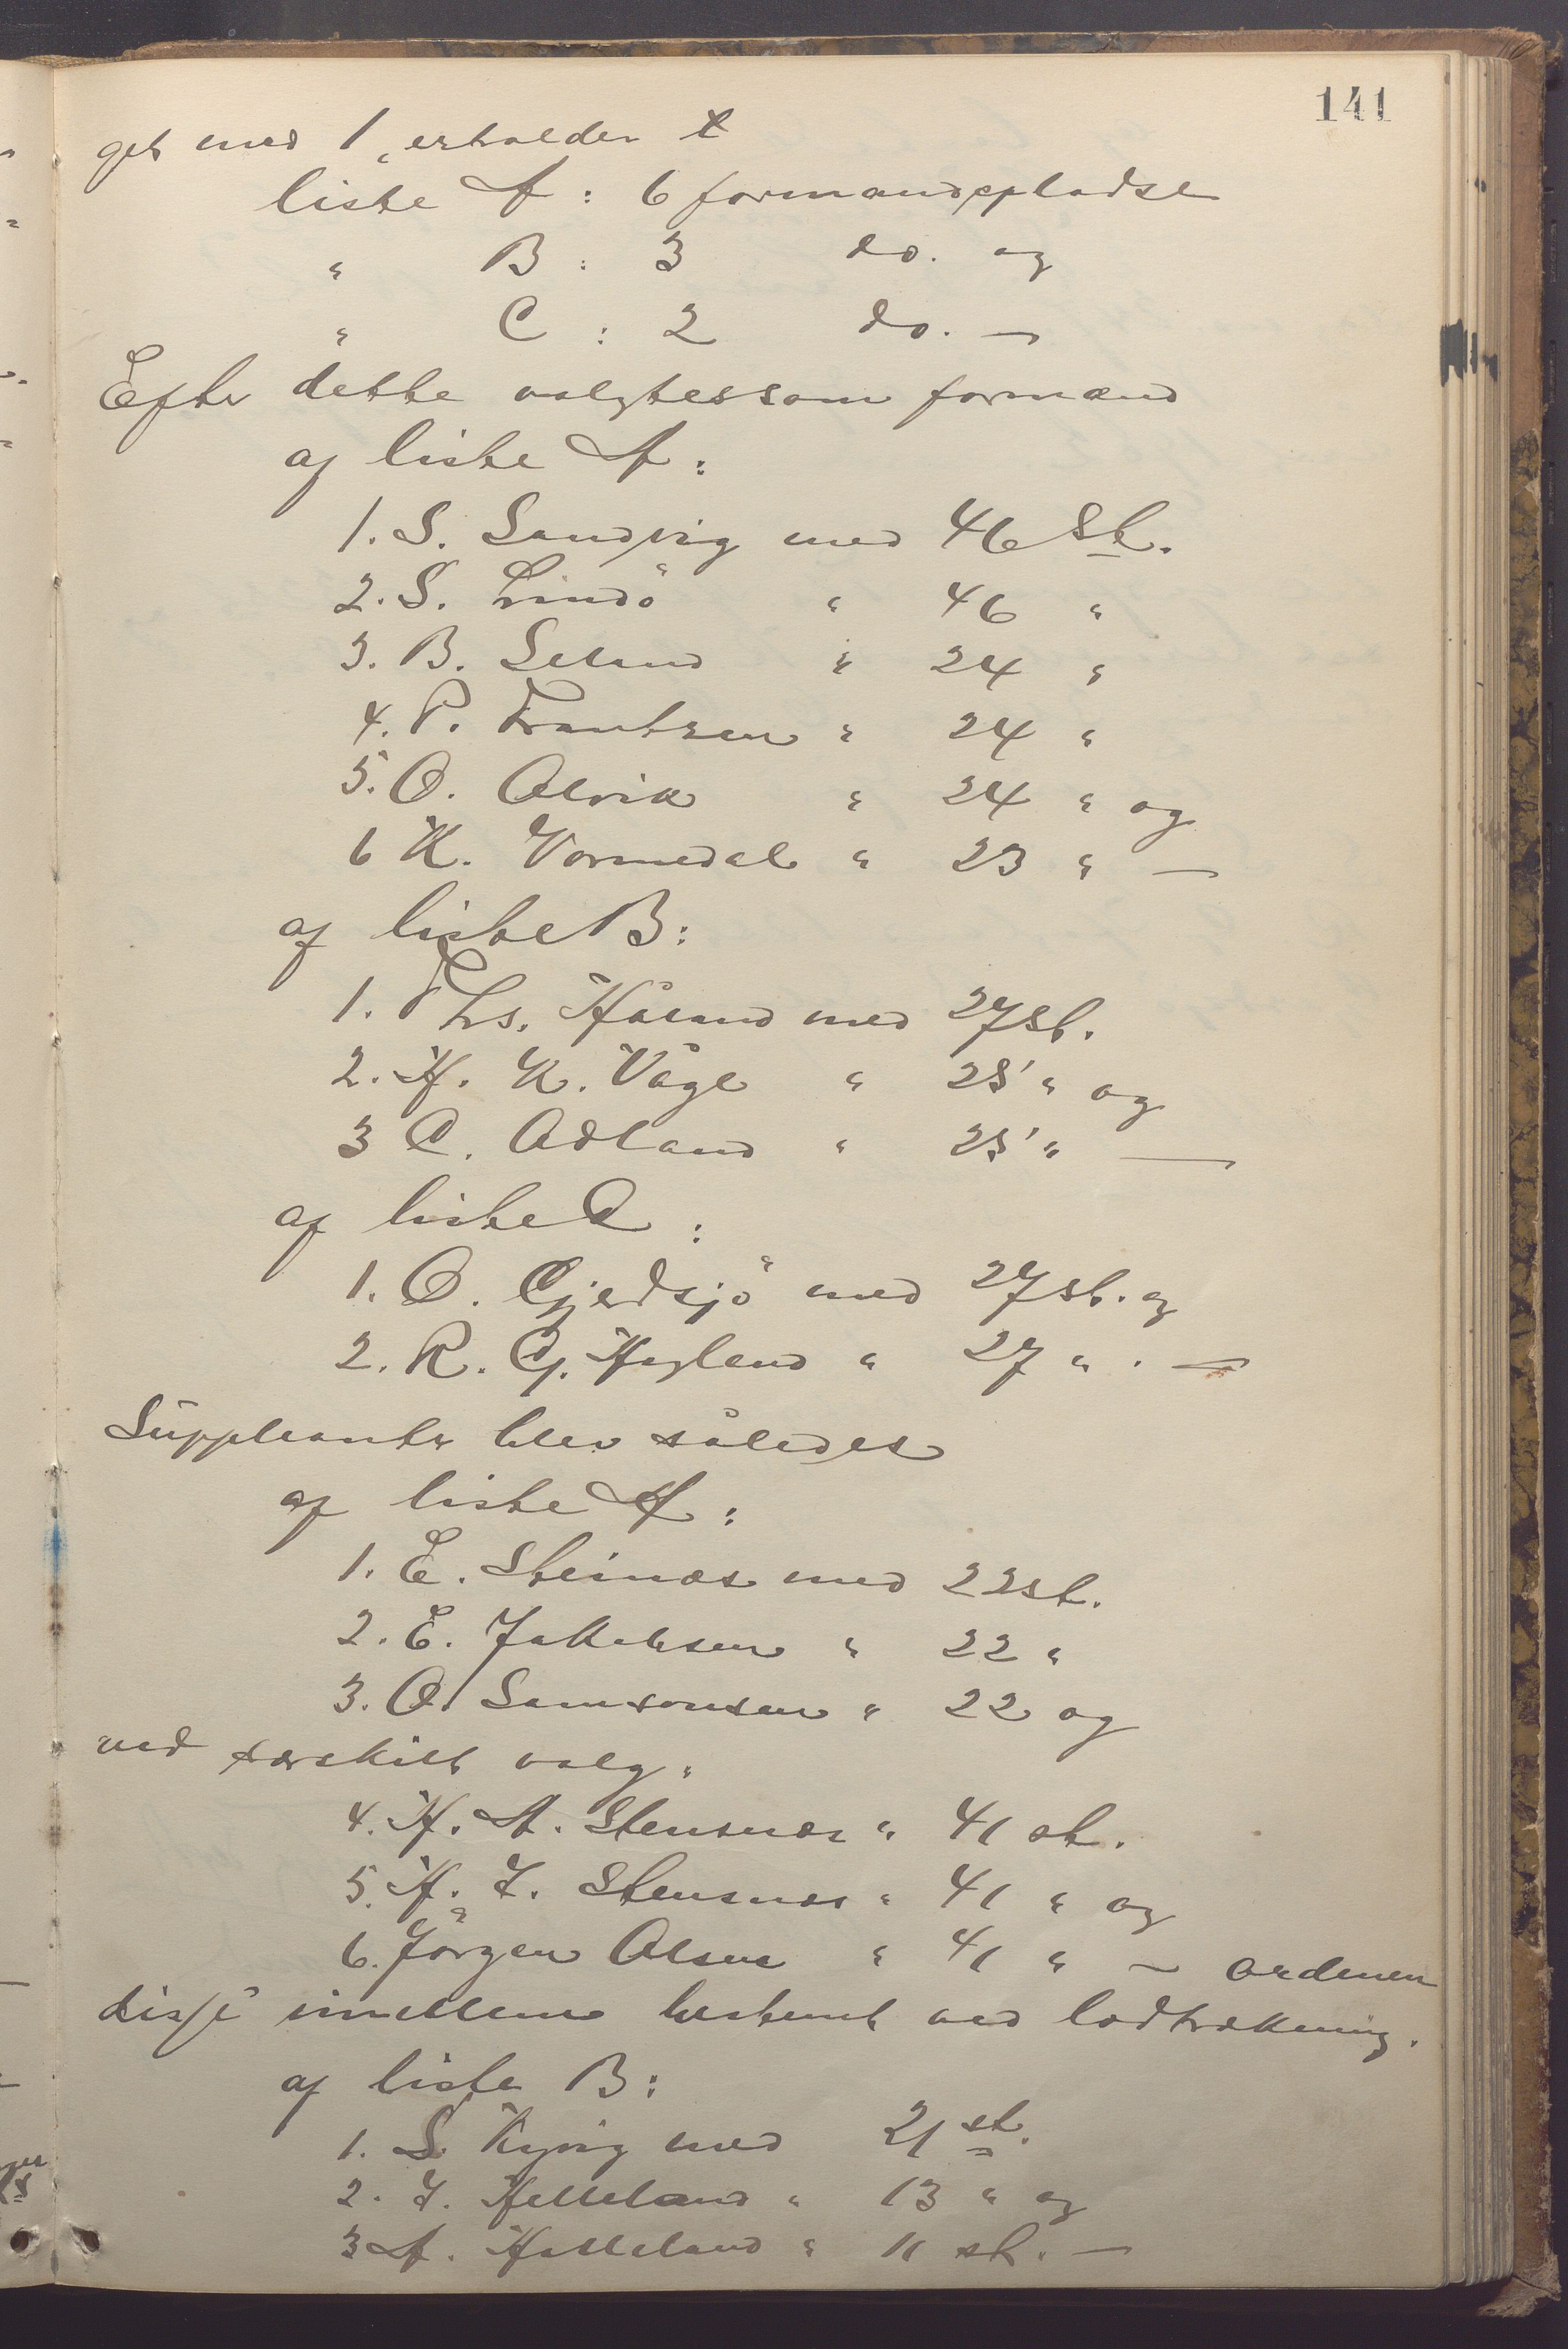 141
get med 1, erholder
liste A : 6 formandspladse
" B : 3 do. og
" C : 2 do. —
Efter dette valgtes som formænd
af liste A :
1. S. Sandvig med 46 St.
2. S. Lindö " 46 "
3. B. Leland " 24 "
4. P. Frantsen " 24 "
5. O. Alvik " 24 " og
6 K. Vormedal " 23 " —
af liste B :
1. Ths. Håland med 27 st.
2. H. K. Våge " 25 " og
3 C. Adland " 25 " —
af liste C :
1. O. Gjerdsjö med 27 st. og
2. R. G. Hagland " 27 " . —
Suppleanter blev således
af liste A :
1. E. Steinæs med 22 st.
2. E. Jakobsen " 22 "
3. O. Samsonsen " 22 og
ved særskilt valg :
4. H. A. Stensnæs " 41 st.
5. H. J. Stensnæs " 41 " og
6. Jörgen Olsen " 41 " — ordenen
disse imellem bestemt ved lodtrækning.
af liste B :
1. S. Kyvig med 21 st.
2. J. Helleland " 13 " og
3 A. Helleland " 11 st. —